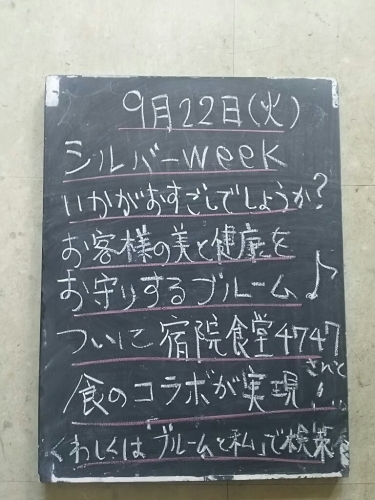 9月22日(火)
シルバーweek
いかがおすごしでしょうか?
お客様の美と健康を
お守りするブルーム♪
ついに宿院食堂4747
食のコラボが実現!
くわしくは「ブルームと私」で検索